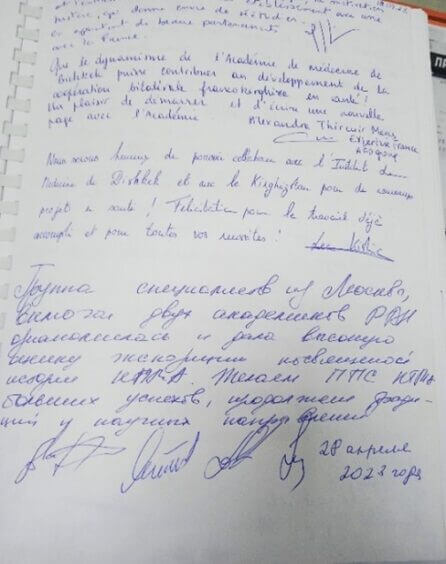 matière, qui donne envie de
en apportant de beaux partenariats
avec la France.
Que le dynamisme de l'Académie de médecine de
Bichkek puisse contribuer au développement de la
coopération bilatérale francokirghize en santé !
Un plaisir de démarrer et d'écrire une nouvelle
page avec l'Académie
Alexandra
Expertise France
Nous sommes heureux de pouvoir collaborer avec l'Institut de
Médecine de Bishkek et avec le Kirghizstan pour de nouveaux
projets en santé ! Félicitation pour le travail déjà
accompli et pour toutes vos réussites !
Группа специалистов из Москвы,
включая двух академиков РАН
ознакомилась и дала высокую
оценку экспозиции посвященной
истории КГМА. Желаем ППС КГМА
больших успехов, продолжения тради-
ций и научных направлений
28 апреля
2023 года